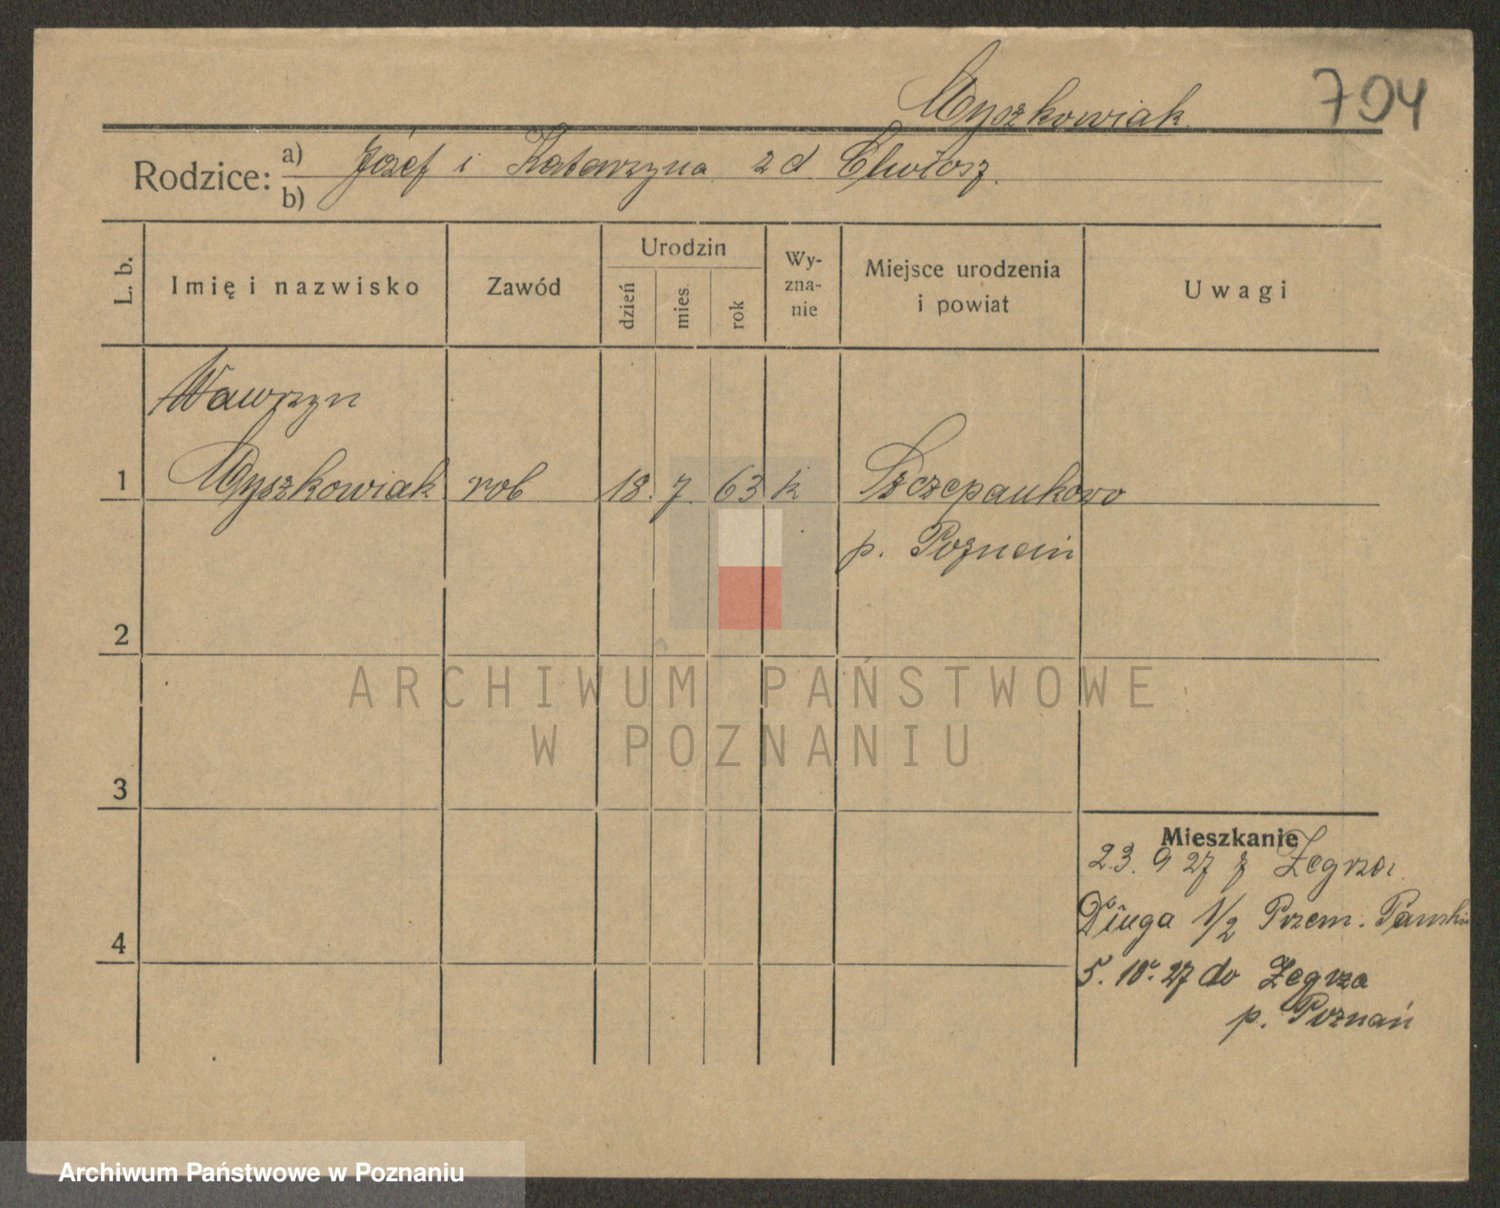 Myszkowiak 704
Rodzice: a) Józef i Katarzyna z d.
b)
L. b.
Imię i nazwisko
Zawód
Urodzin
dzień
mies.
rok
Wy-
zna-
nie
Miejsce urodzenia
i powiat
Uwagi
Wawrzyn
1 Myszkowiak rob 18. 7. 63 k Szczepankowo
p. Poznań
2
3
4
Mieszkanie
23. 9 27 z Zegrza.
Długa 1/2 Przem.
5. 10. 27 do Zegrza
p. Poznań
ARCHIWUM PAŃSTWOWE
W POZNANIU
Archiwum Państwowe w Poznaniu